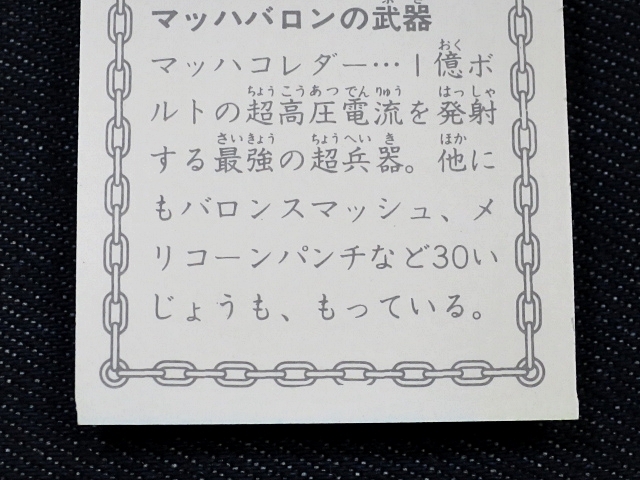 マッハバロンの武器
マッハコレダー…1億ボ
ルトの超高圧電流を発射
する最強の超兵器。他に
もバロンスマッシュ、メ
リコーンパンチなど30い
じょうも、もっている。